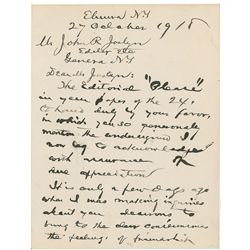 Elmira NY
2nd October 1918
Mr John R Joslyn
Editor Etc
Geneva NY
Dear Mr Joslyn:
The Editorial "Please"
in your paper of the 24,
to hand duly by your favor,
in which you so generously
mention the undersigned I
am to acknowledge
with assurance of
due appreciation
It is only a few days ago
when I was making inquiries
about you desirous to
bring to the dear
the feelings of friendship